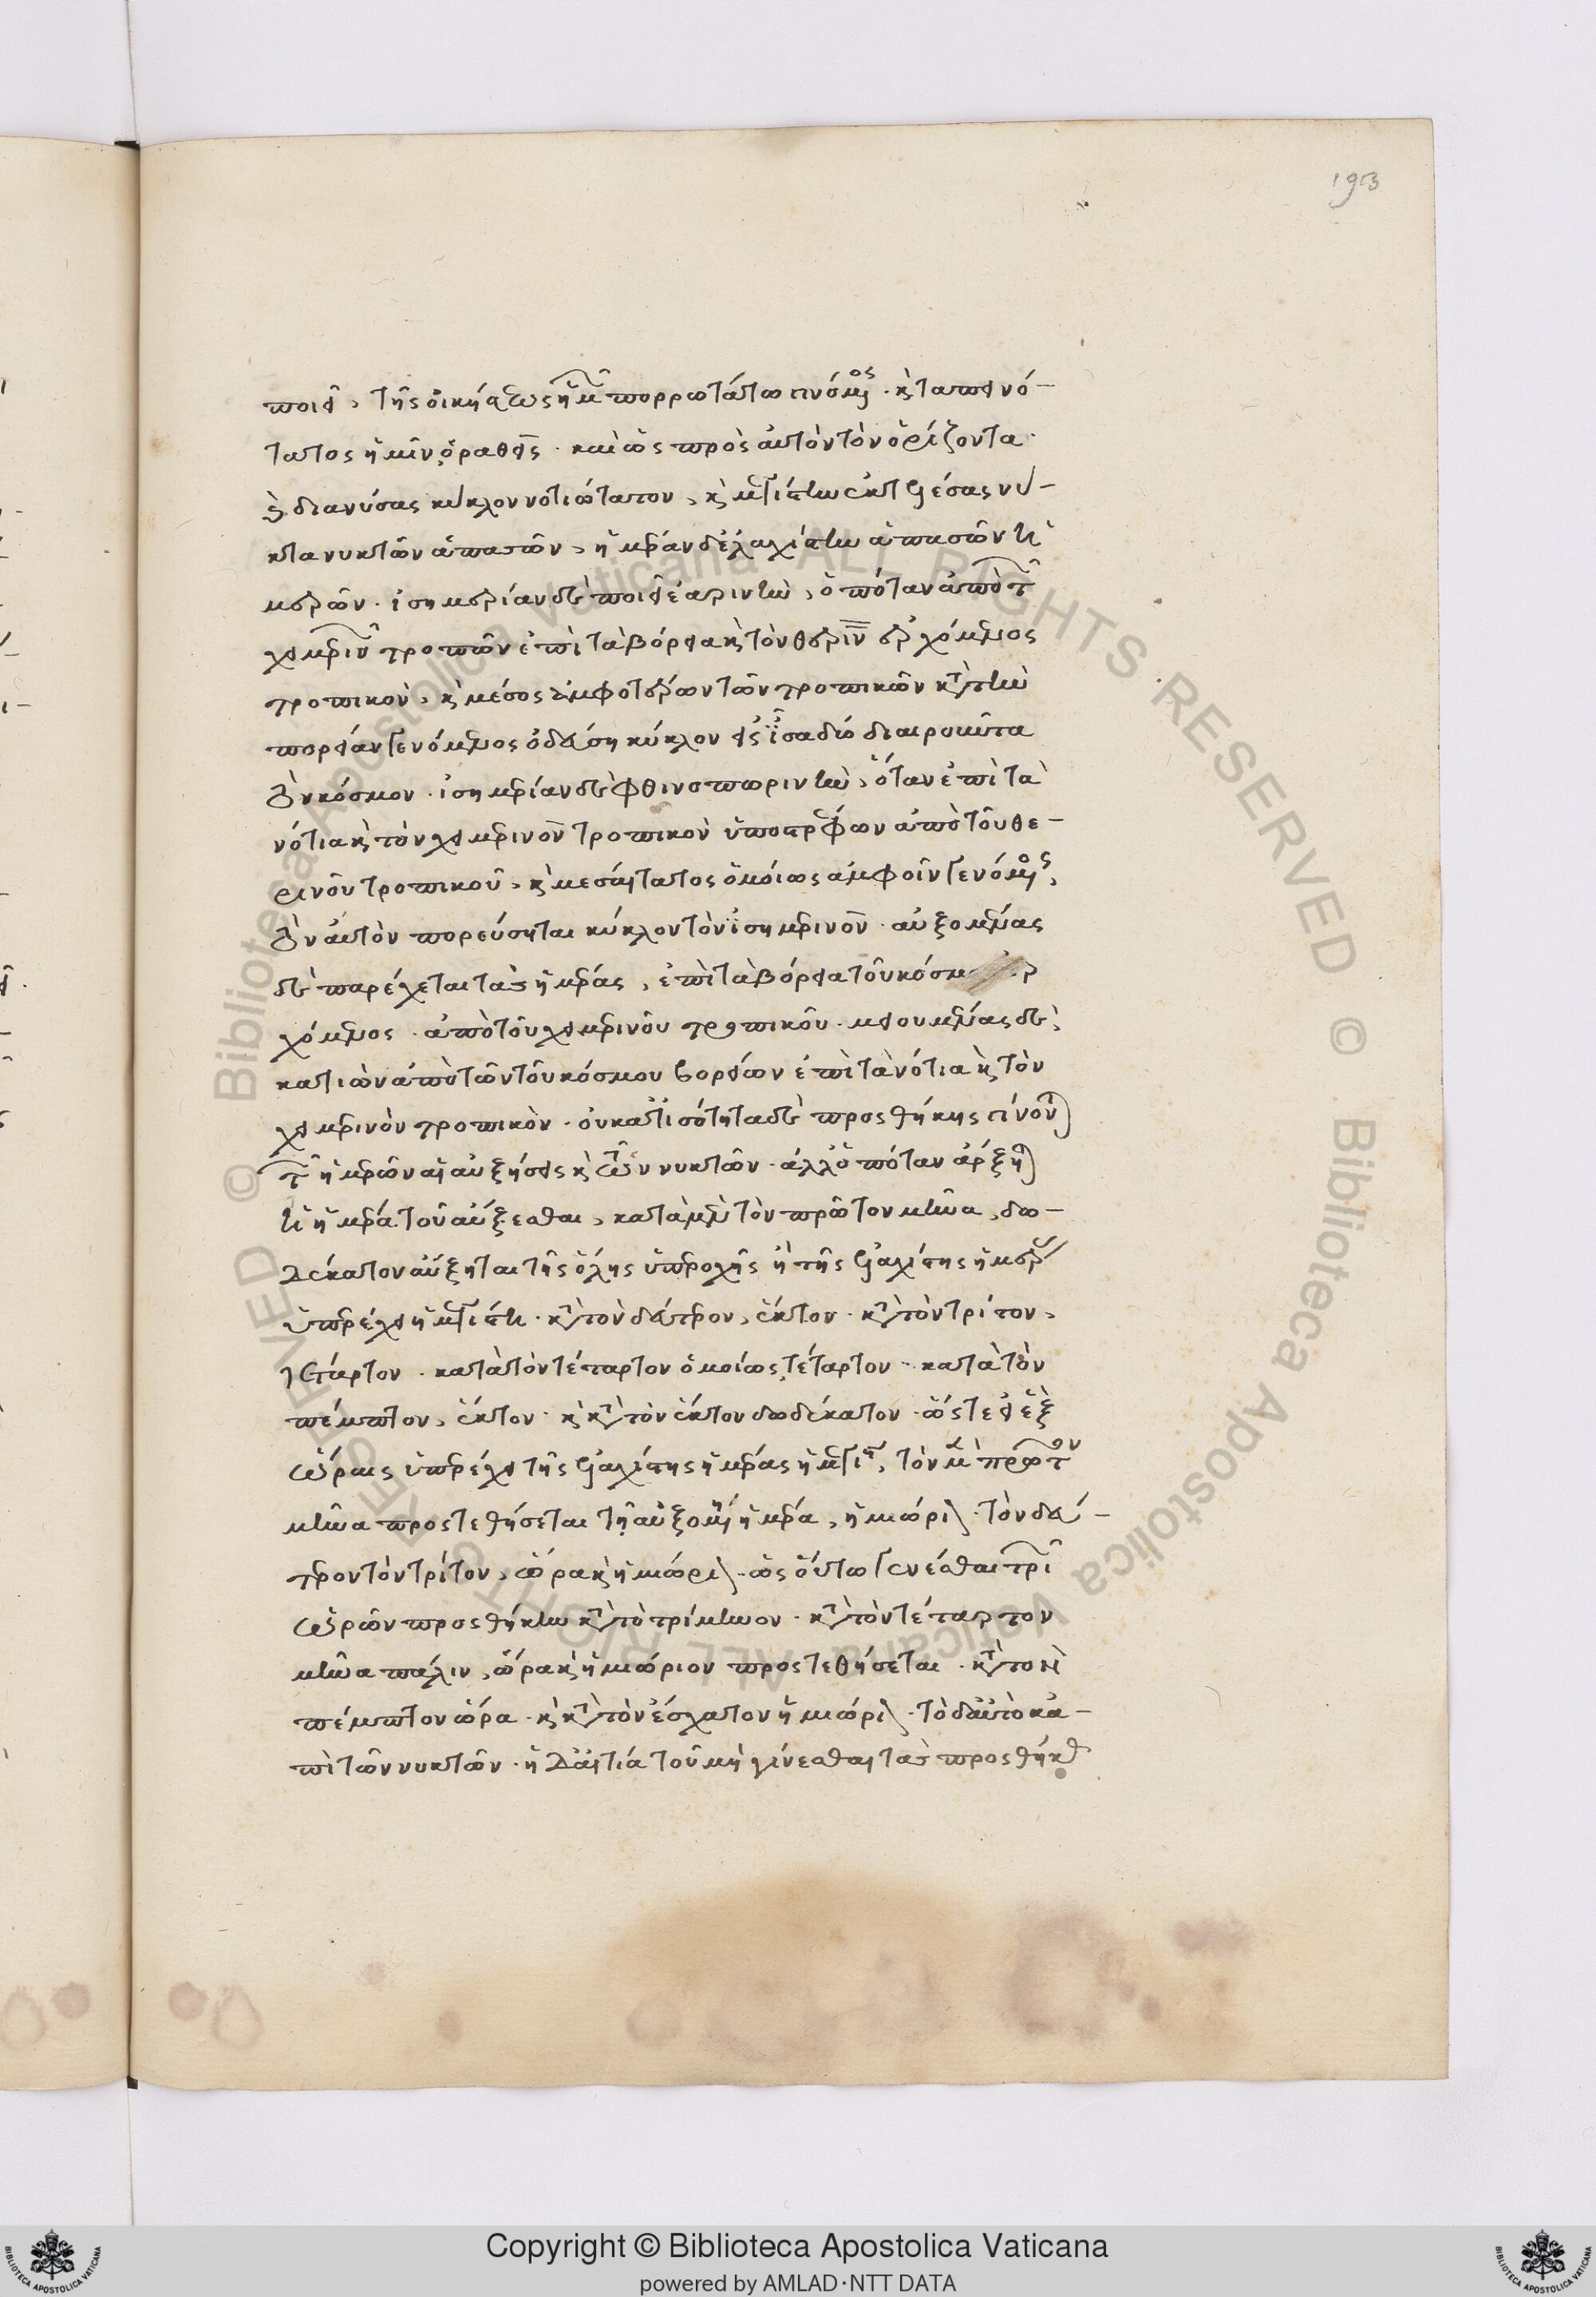 193
ποιεῖ, τῆς οἰκήσεως ἡμῶν πορρωτάτω γινόμενος. καὶ ταπεινό-
τατος ἡμῖν ὁραθείς. καὶ ὡς πρὸς αὐτὸν τὸν ὁρίζοντα.
καὶ διανύσας κύκλον νοτιώτατον, καὶ μεγίστην ἐκτελέσας νύ-
κτα νυκτῶν ἁπασῶν, ἡμέραν δὲ ἐλαχίστην ἁπασῶν ἡ-
μερῶν. ἰσημερίαν δὲ ποιεῖ ἐαρινὴν, ὁπόταν ἀπὸ τῶν
χειμερινῶν τροπῶν ἐπὶ τὰ βόρεια καὶ τὸν θερινὸν ἐρχόμενος
τροπικὸν, καὶ μέσος ἀμφοτέρων τῶν τροπικῶν κατὰ τὴν
πορείαν γενόμενος ὁδεύσῃ κύκλον εἰς ἴσα δύο διαιροῦντα
τὸν κόσμον. ἰσημερίαν δὲ φθινοπωρινὴν, ὅταν ἐπὶ τὰ
νότια καὶ τὸν χειμερινὸν τροπικὸν ὑποστρέφων ἀπὸ τοῦ θε-
ρινοῦ τροπικοῦ, καὶ μεσαίτατος ὁμοίως ἀμφοῖν γενόμενος,
τὸν αὐτὸν πορεύσηται κύκλον τὸν ἰσημερινὸν. αὐξομένας
δὲ παρέχεται τὰς ἡμέρας, ἐπὶ τὰ βόρεια τοῦ κόσμου ἐρ
χόμενος. ἀπὸ τοῦ χειμερινοῦ τροπικοῦ. μειουμένας δὲ,
κατιὼν ἀπὸ τῶν τοῦ κόσμου βορείων ἐπὶ τὰ νότια καὶ τὸν
χειμερινὸν τροπικὸν. οὐ κατ' ἰσότητα δὲ προσθήκης γίνονται
τῶν ἡμερῶν αἱ αὐξήσεις καὶ τῶν νυκτῶν. ἀλλ' ὁπόταν ἄρξηται
ἡ ἡμέρα τοῦ αὔξεσθαι, κατὰ μὲν τὸν πρῶτον μῆνα, δω-
δέκατον αὔξηται τῆς ὅλης ὑπεροχῆς ἣ τῆς ἐλαχίστης ἡμέρας
ὑπερέχει ἡ μεγίστη. κατὰ τὸν δεύτερον, ἕκτον. κατὰ τὸν τρίτον,
τέταρτον. κατὰ τὸν τέταρτον ὁμοίως τέταρτον. κατὰ τὸν
πέμπτον, ἕκτον. καὶ κατὰ τὸν ἕκτον δωδέκατον. ὥστε εἰ ἓξ
ὥραις ὑπερέχει τῆς ἐλαχίστης ἡμέρας ἡ μεγίστη, τὸν μὲν πρῶτον
μῆνα προστεθήσεται τῇ αὐξομένῃ ἡμέρα, ἡμιώριον. τὸν δεύ-
τερον τὸν τρίτον, ὥρα καὶ ἡμιώριον. ὡς οὕτω γενέσθαι τριῶν
ὡρῶν προσθήκην κατὰ τὸ τρίμηνον. κατὰ τὸν τέταρτον
μῆνα πάλιν, ὥρα καὶ ἡμιώριον προστεθήσεται. κατὰ τὸν
πέμπτον ὥρα. καὶ κατὰ τὸν ἔσχατον ἡμιώριον. τὸ δ' αὐτὸ κἀ-
πὶ τῶν νυκτῶν. ἡ δ' αἰτία τοῦ μὴ γίνεσθαι τὰς προσθήκας
Copyright © Biblioteca Apostolica Vaticana
powered by AMLAD·NTT DATA